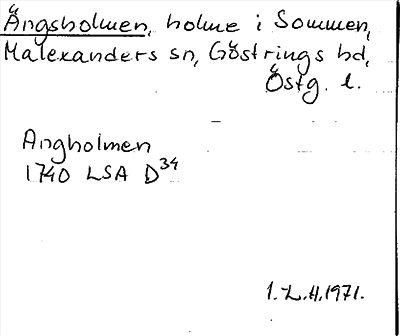 Ängsholmen, holme i Sommen,
Malexanders sn, Göstrings hd,
Östg. l.
Angholmen
1740 LSA D34
1. L.H. 1971.